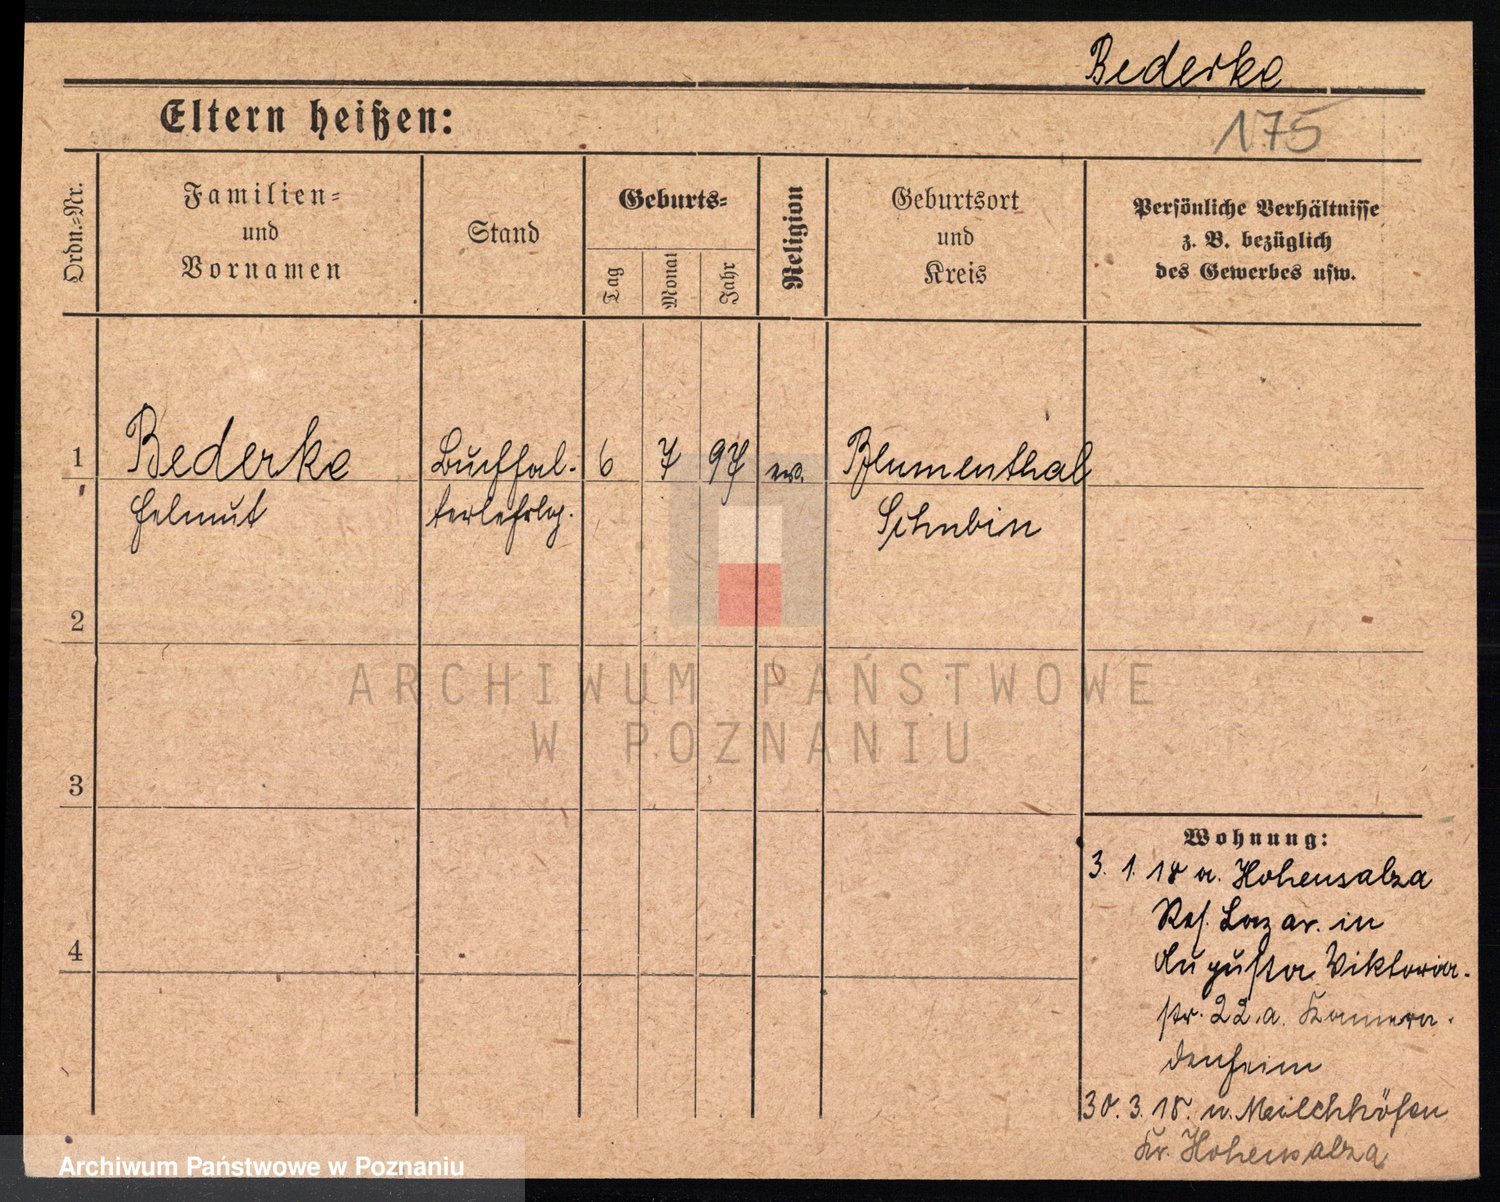 Bederke
Eltern heißen:
175
Ordn.=Nr.
Familien=
und
Vornamen
Stand
Geburts=
Tag
Monat
Jahr
Religion
Geburtsort
und
Kreis
Persönliche Verhältnisse
z. B. bezüglich
des Gewerbes usw.
1 Bederke Buchhal- 6 7 97 ev. Blumenthal
Helmut terlehrlg. Schubin
2
3
4
ARCHIWUM PAŃSTWOWE
W POZNANIU
Wohnung:
3. 1. 18 a. Hohensalza
Res. Lazar. in
Augusta Viktoria-
str. 22.a. Kamera-
denheim
30. 3. 18. n.
Kr. Hohensalza
Archiwum Państwowe w Poznaniu